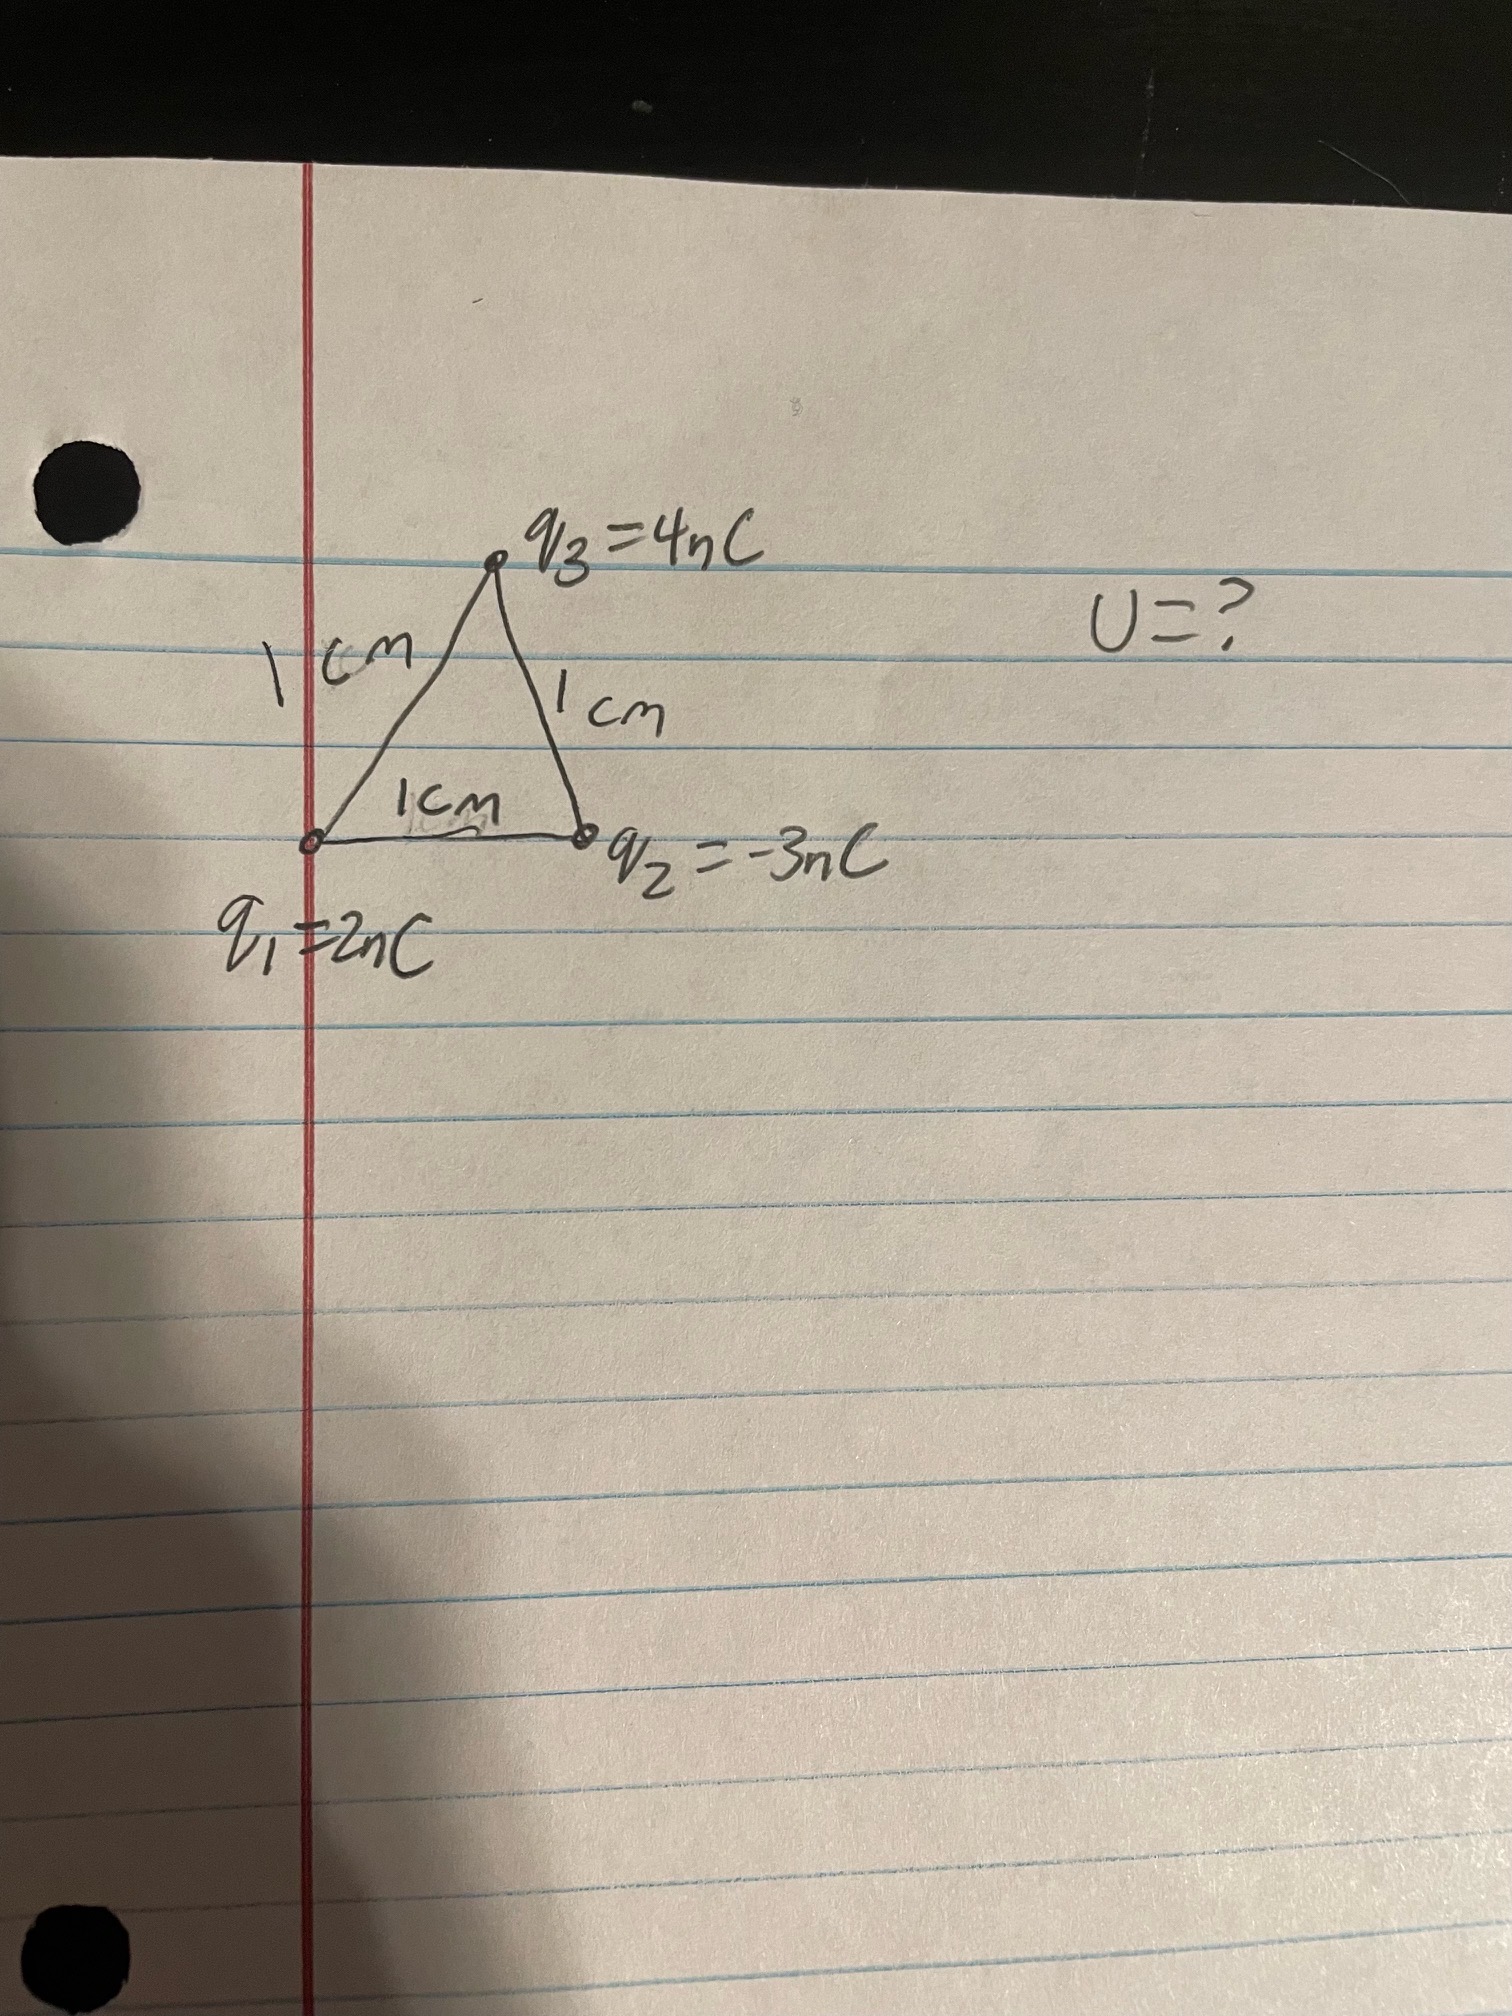 q₃ = 4nC
U = ?
1 cm
1 cm
1 cm
q₂ = -3nC
q₁ = 2nC